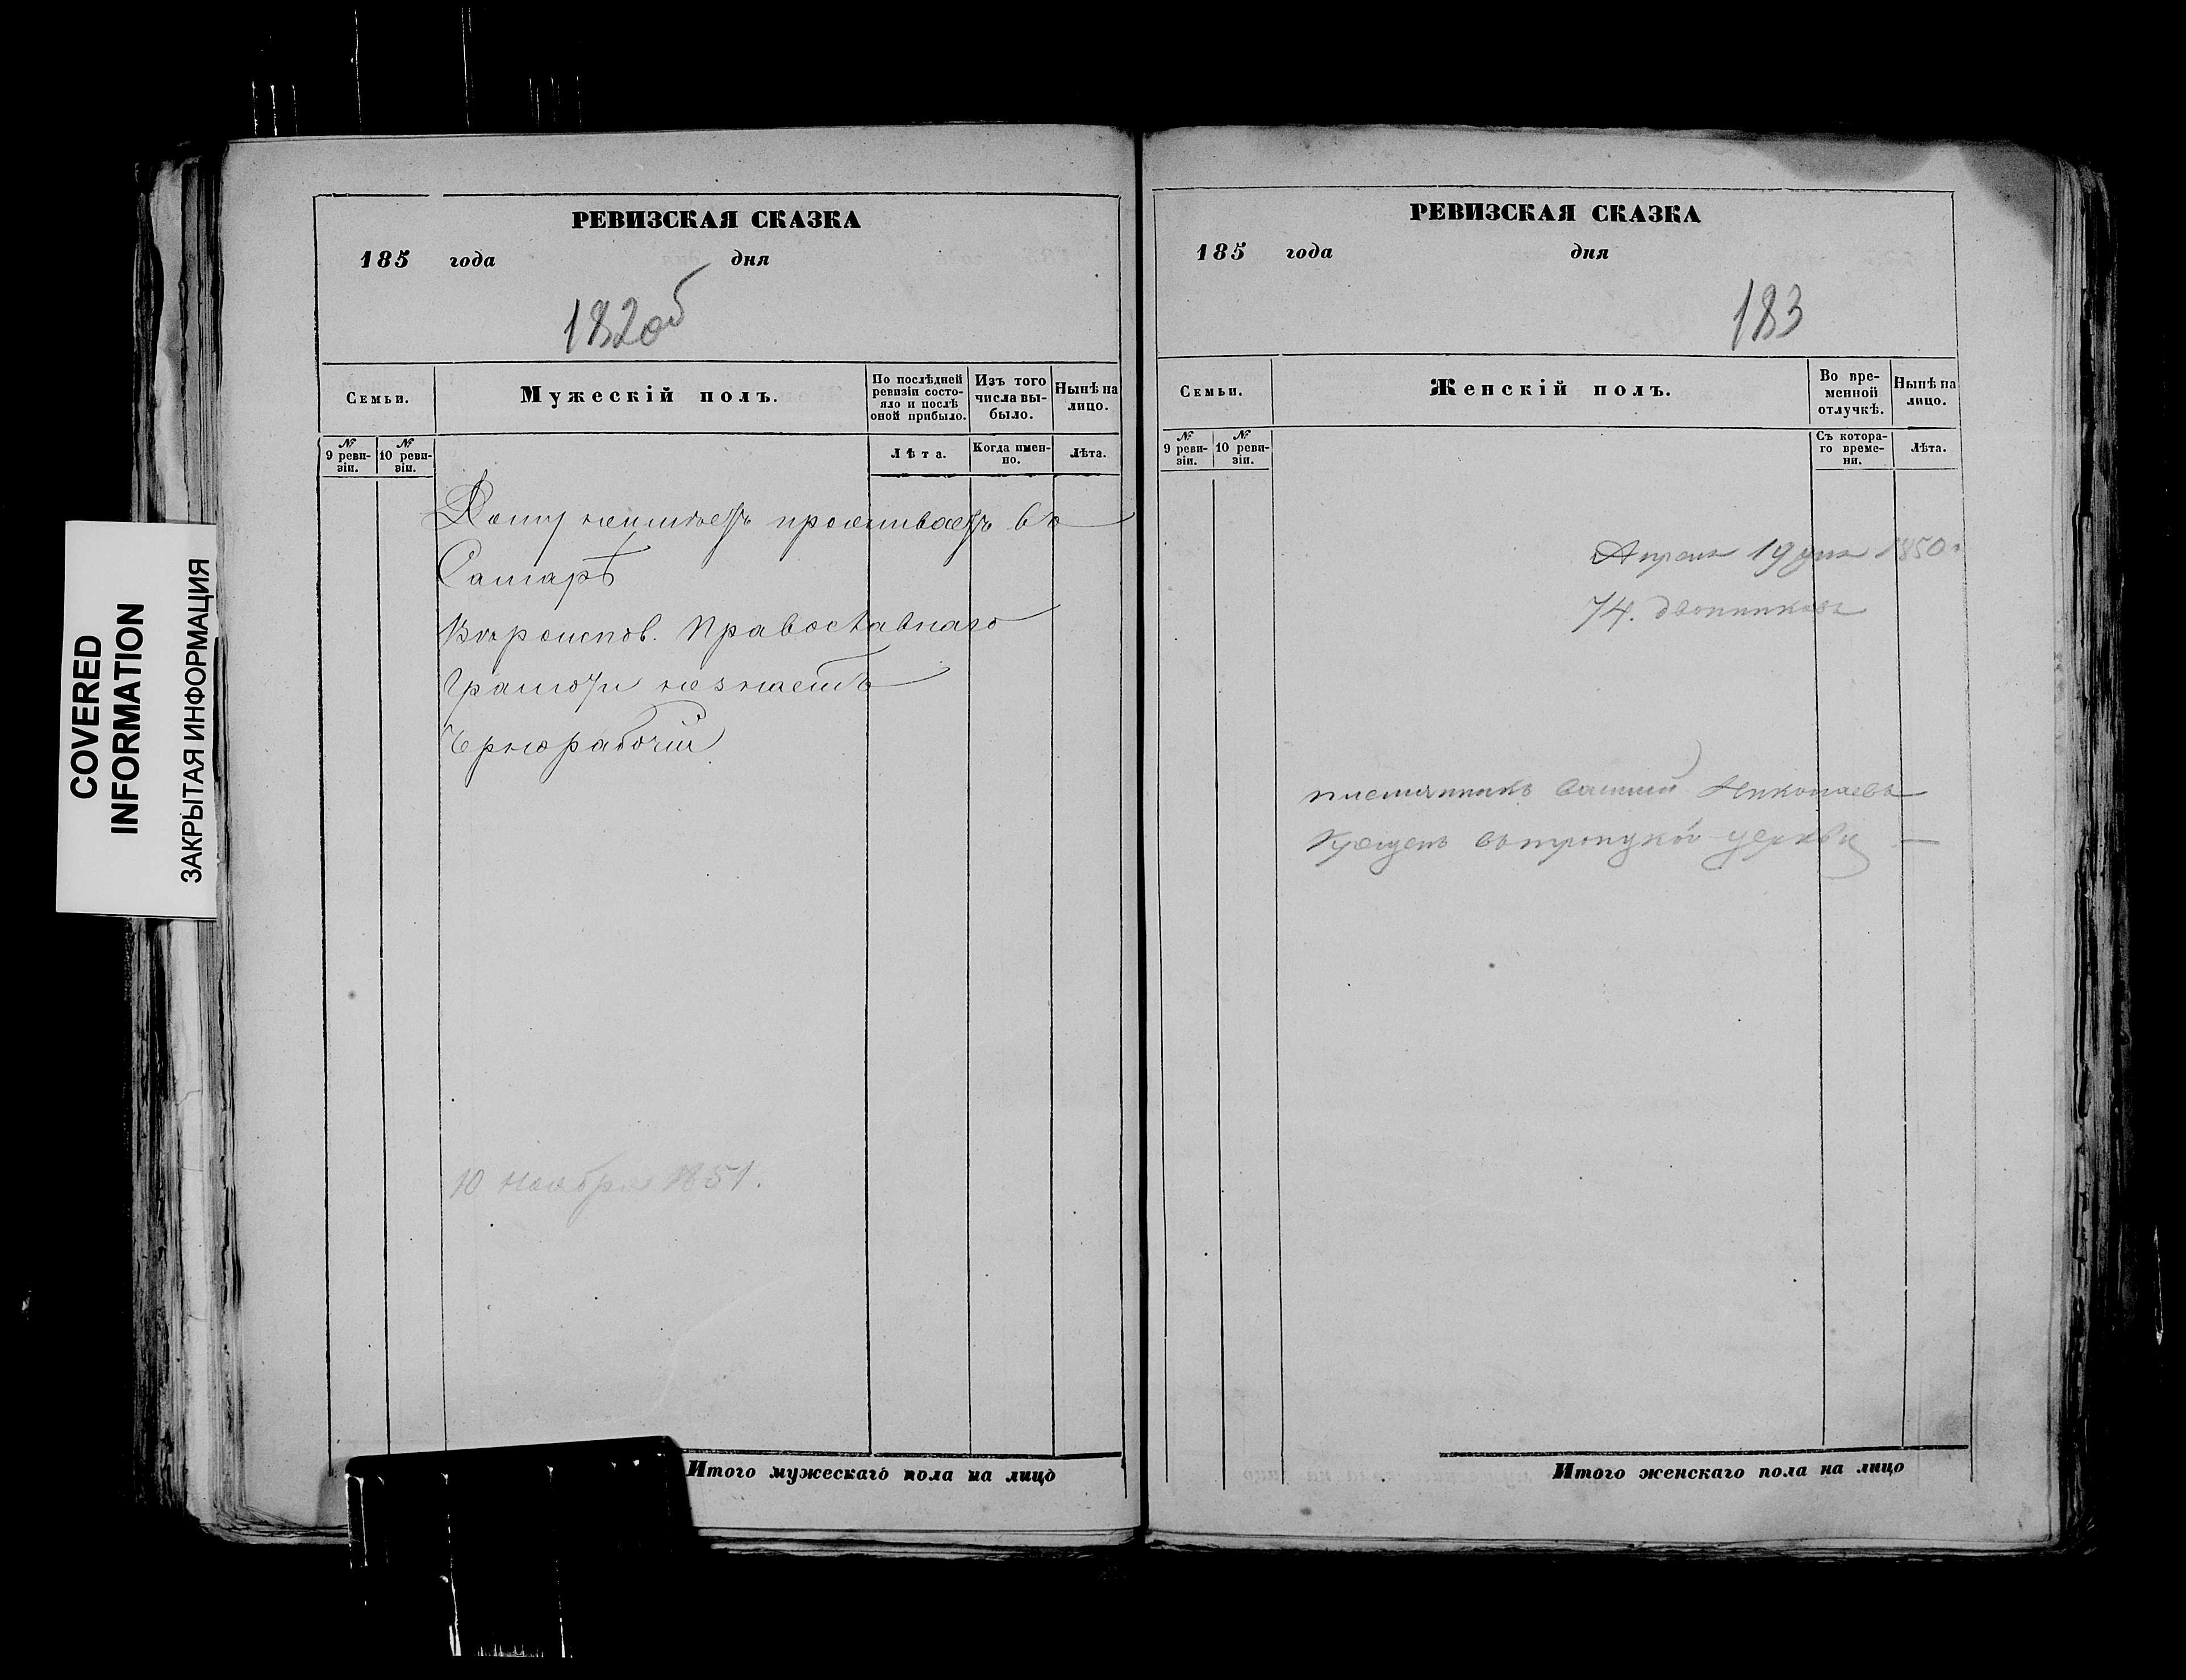 COVERED
INFORMATION
ЗАКРЫТАЯ ИНФОРМАЦИЯ
РЕВИЗСКАЯ СКАЗКА
185 года дня
182об
Семьи.
Мужескій полъ.
По послѣдней ревизіи состояло и послѣ оной прибыло.
Изъ того числа выбыло.
Нынѣ на лицо.
№ 9 ревизіи.
№ 10 ревизіи.
Лѣта.
Когда именно.
Лѣта.
Дому неимѣетъ проживаетъ въ
Самарѣ
Вѣроиспов. Православнаго
Грамоты незнаетъ
Чернорабочій
10 Ноября 1851.
Итого мужескаго пола на лицо
РЕВИЗСКАЯ СКАЗКА
185 года дня
183
Семьи.
Женскій полъ.
Во временной отлучкѣ.
Нынѣ на лицо.
№ 9 ревизіи.
№ 10 ревизіи.
Съ котораго времени.
Лѣта.
Апреля 19 дня 1850
74.
племянникъ Николаевъ
Крещенъ въ троицкой церкви
Итого женскаго пола на лицо